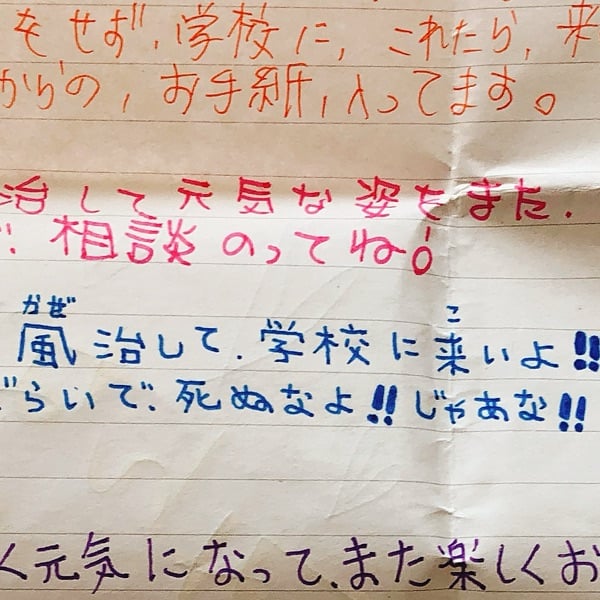 をせず、学校に、これたら、来
からの、お手紙、入ってます。
治して元気な姿をまた、
相談のってね!
かぜ こ
風治して、学校に来いよ!!
ぐらいで、死ぬなよ!! じゃあな!!
く元気になって、また楽しくお